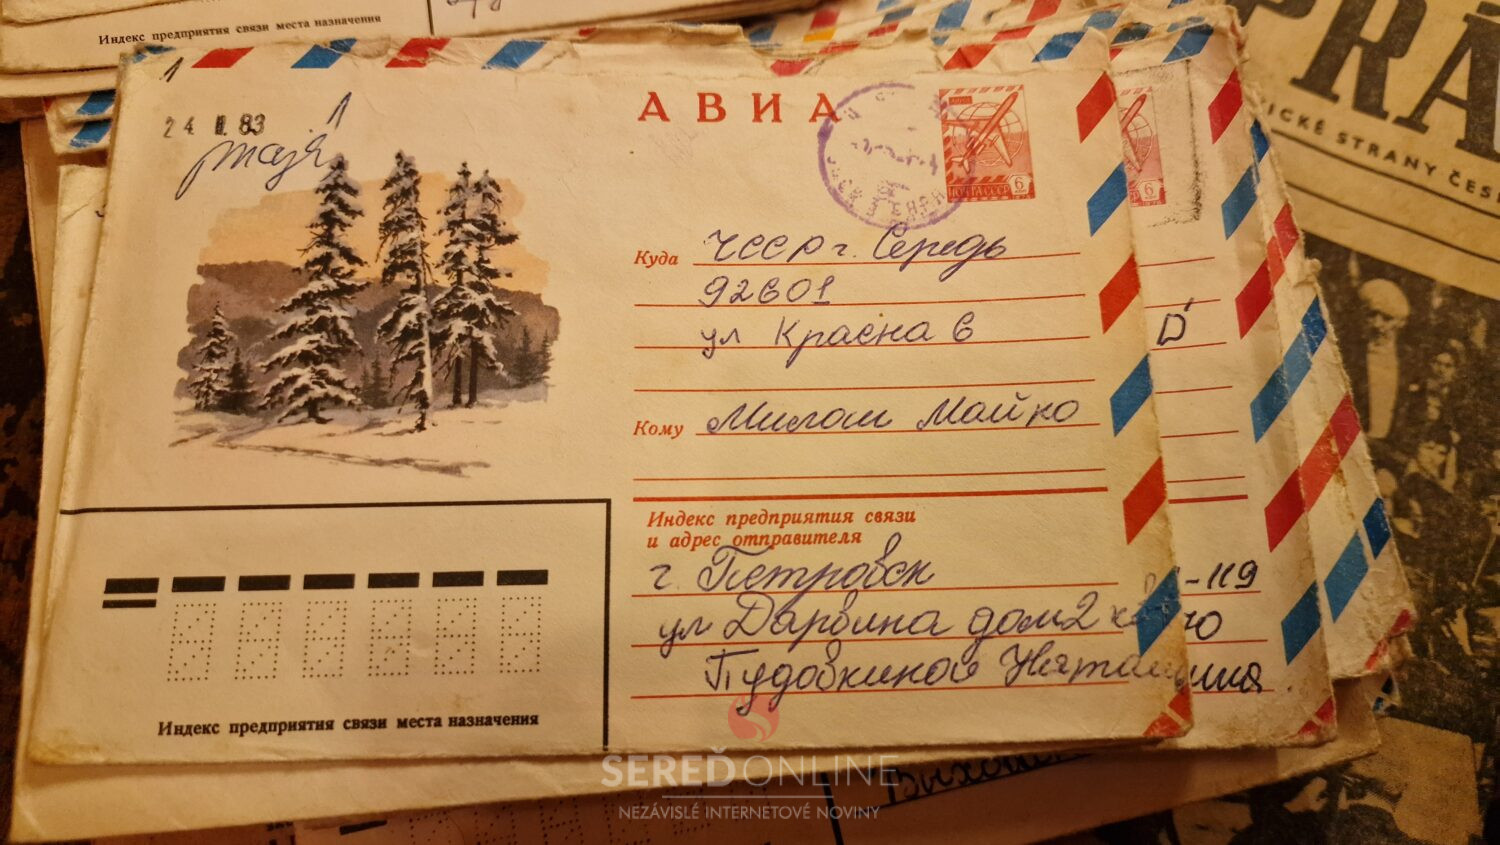 Индекс предприятия связи места назначения
1
24 II 83
1
АВИА
ПОЧТА СССР
6
6
Куда ЧССР г. Середь
92601
ул Красна 6
Ď
Кому Милош Майко
Индекс предприятия связи
и адрес отправителя
г. Петровск
-119
ул Дарвина дом 2
Пудовкиной
Индекс предприятия связи места назначения
SEREĎONLINE
NEZÁVISLÉ INTERNETOVÉ NOVINY
PRÁ
ICKÉ STRANY ČES